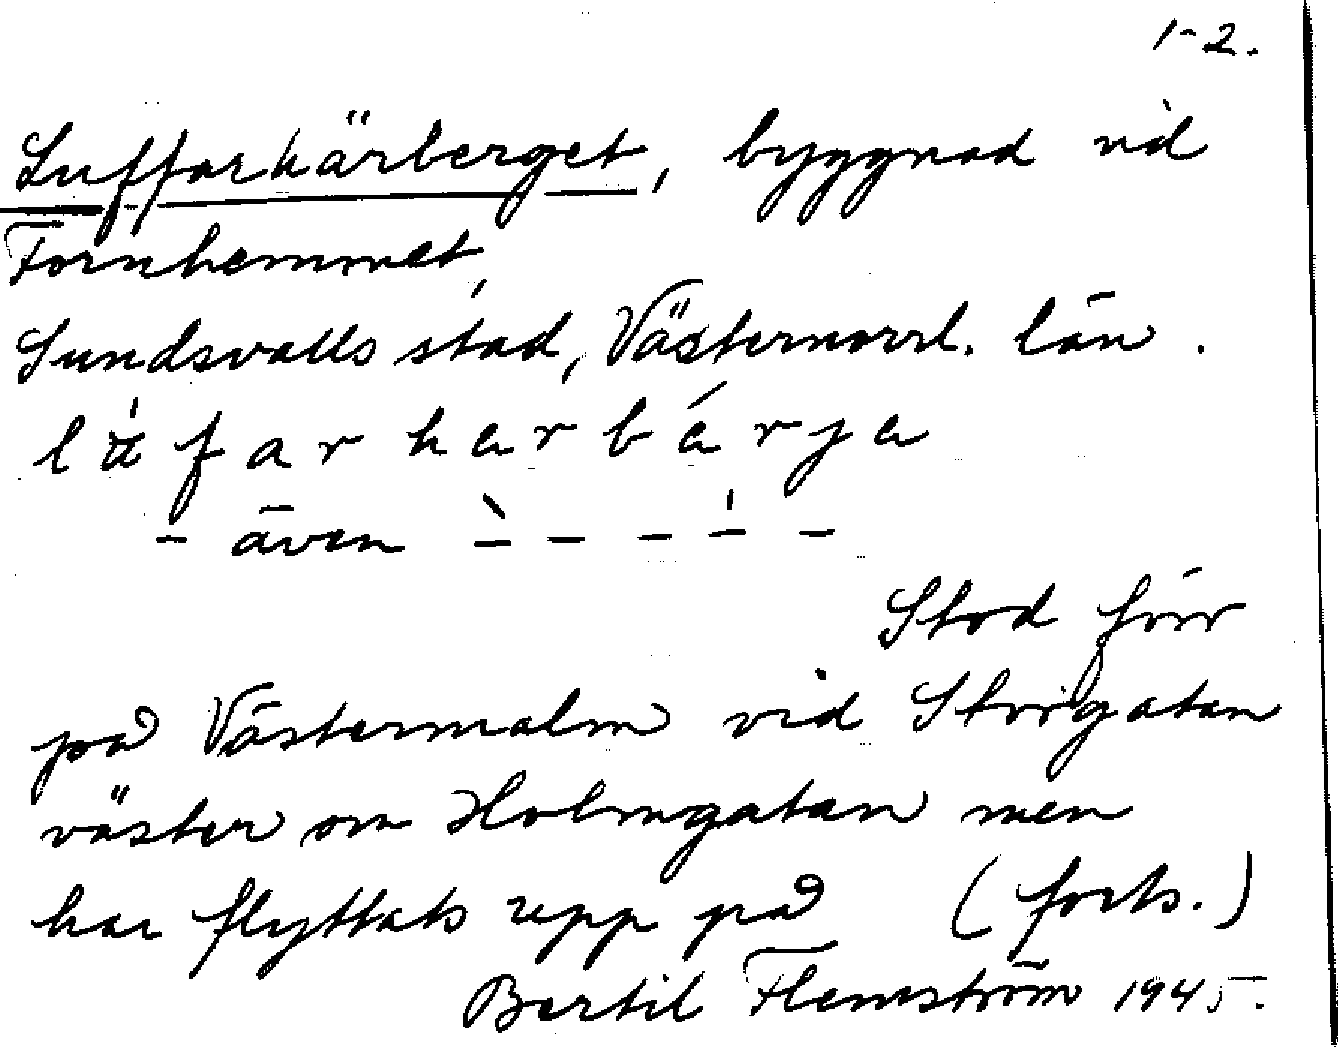 1-2.
Luffarhärberget, byggnad vid
Fornhemmet,
Sundsvalls stad, Västernorrl. län.
lä̀farharbárja
- även - - - - -
Stod förr
på Västermalm vid Storgatan
väster om Holmgatan men
har flyttats upp på (forts.)
Bertil Flemström 1945.